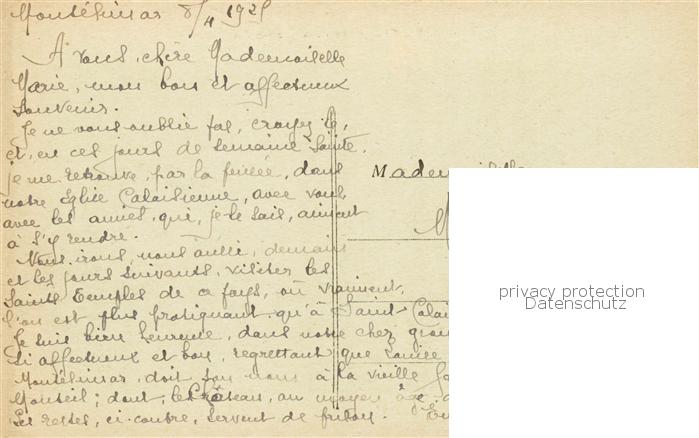 Montélimar 8/4 1925
À vous, chère Mademoiselle
Marie, mon bon et affectueux
souvenir.
Je ne vous oublie pas, croyez-le,
et, en ces jours de Semaine Sainte,
je me retrouve, par la pensée, dans
notre Église Calaisienne, avec vous,
avec les amies, qui, je le sais, aiment
à s'y rendre.
Nous irons, nous aussi, demain
et les jours suivants, visiter les
Saints Temples de ce pays, où vraiment,
l'on est plus pratiquant qu'à Saint Calais
Je suis bien heureuse, dans notre chez
si affectueux et bon, regrettant que
Montélimar, doit son nom à la vieille
Monteil; dont, le Château, au moyen âge,
Les restes, ci-contre, servent de prison.
Mademoiselle
privacy protection
Datenschutz